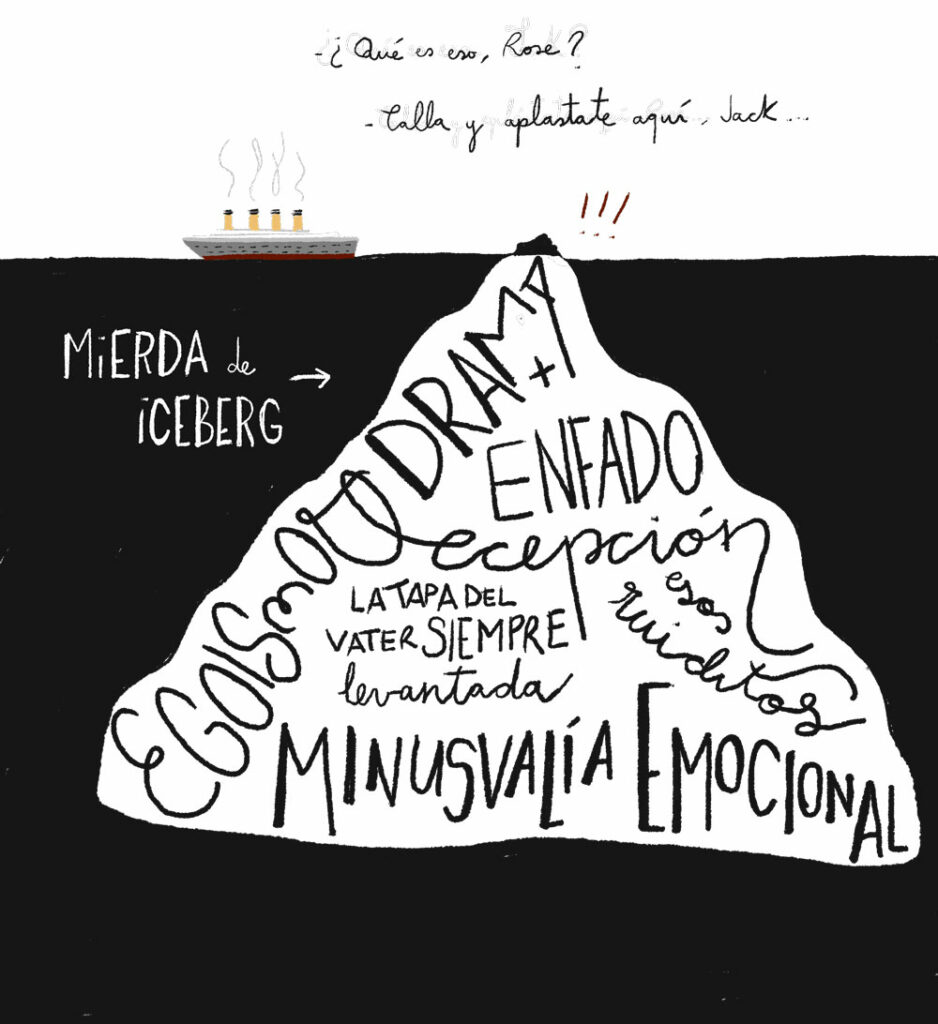 -¿Qué es eso, Rose?
-Calla y aplastate aquí, Jack...
!!!
MiERDA de
iCEBERG
→
DRAMA
+
ENFADO
EGOISMO
Decepción
LA TAPA DEL
VATER SIEMPRE
levantada
esos
ruiditos
MINUSVALÍA EMOCIONAL